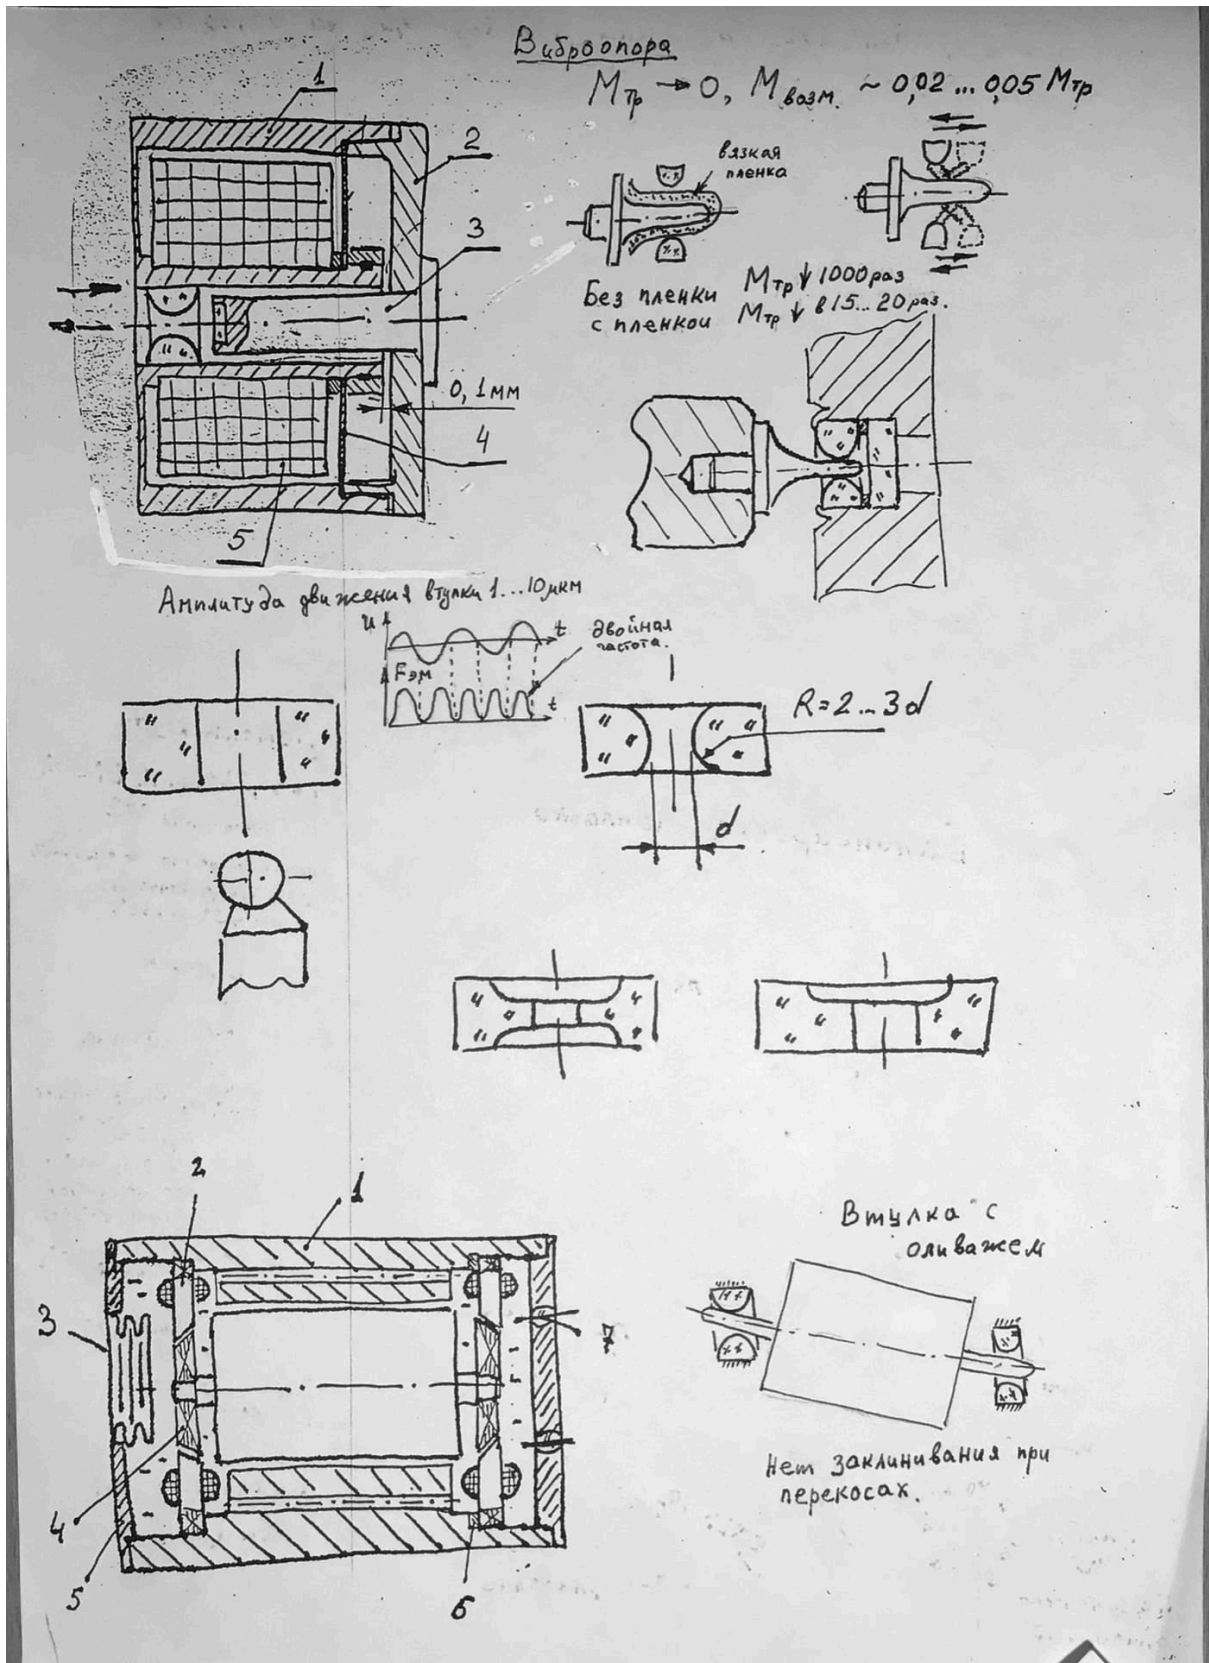 Виброопора
Mтр → 0, Mвозм. ~ 0,02 ... 0,05 Mтр
1
2
3
вязкая
пленка
Без пленки Mтр ↓ 1000 раз
с пленкой Mтр ↓ в 15... 20 раз.
0,1мм
4
5
Амплитуда движения втулки 1...10мкм
u
t
двойная
частота.
Fэм
t
R=2...3d
d
2
1
3
7
4
5
6
Втулка с
оливажем
Нет заклинивания при
перекосах.